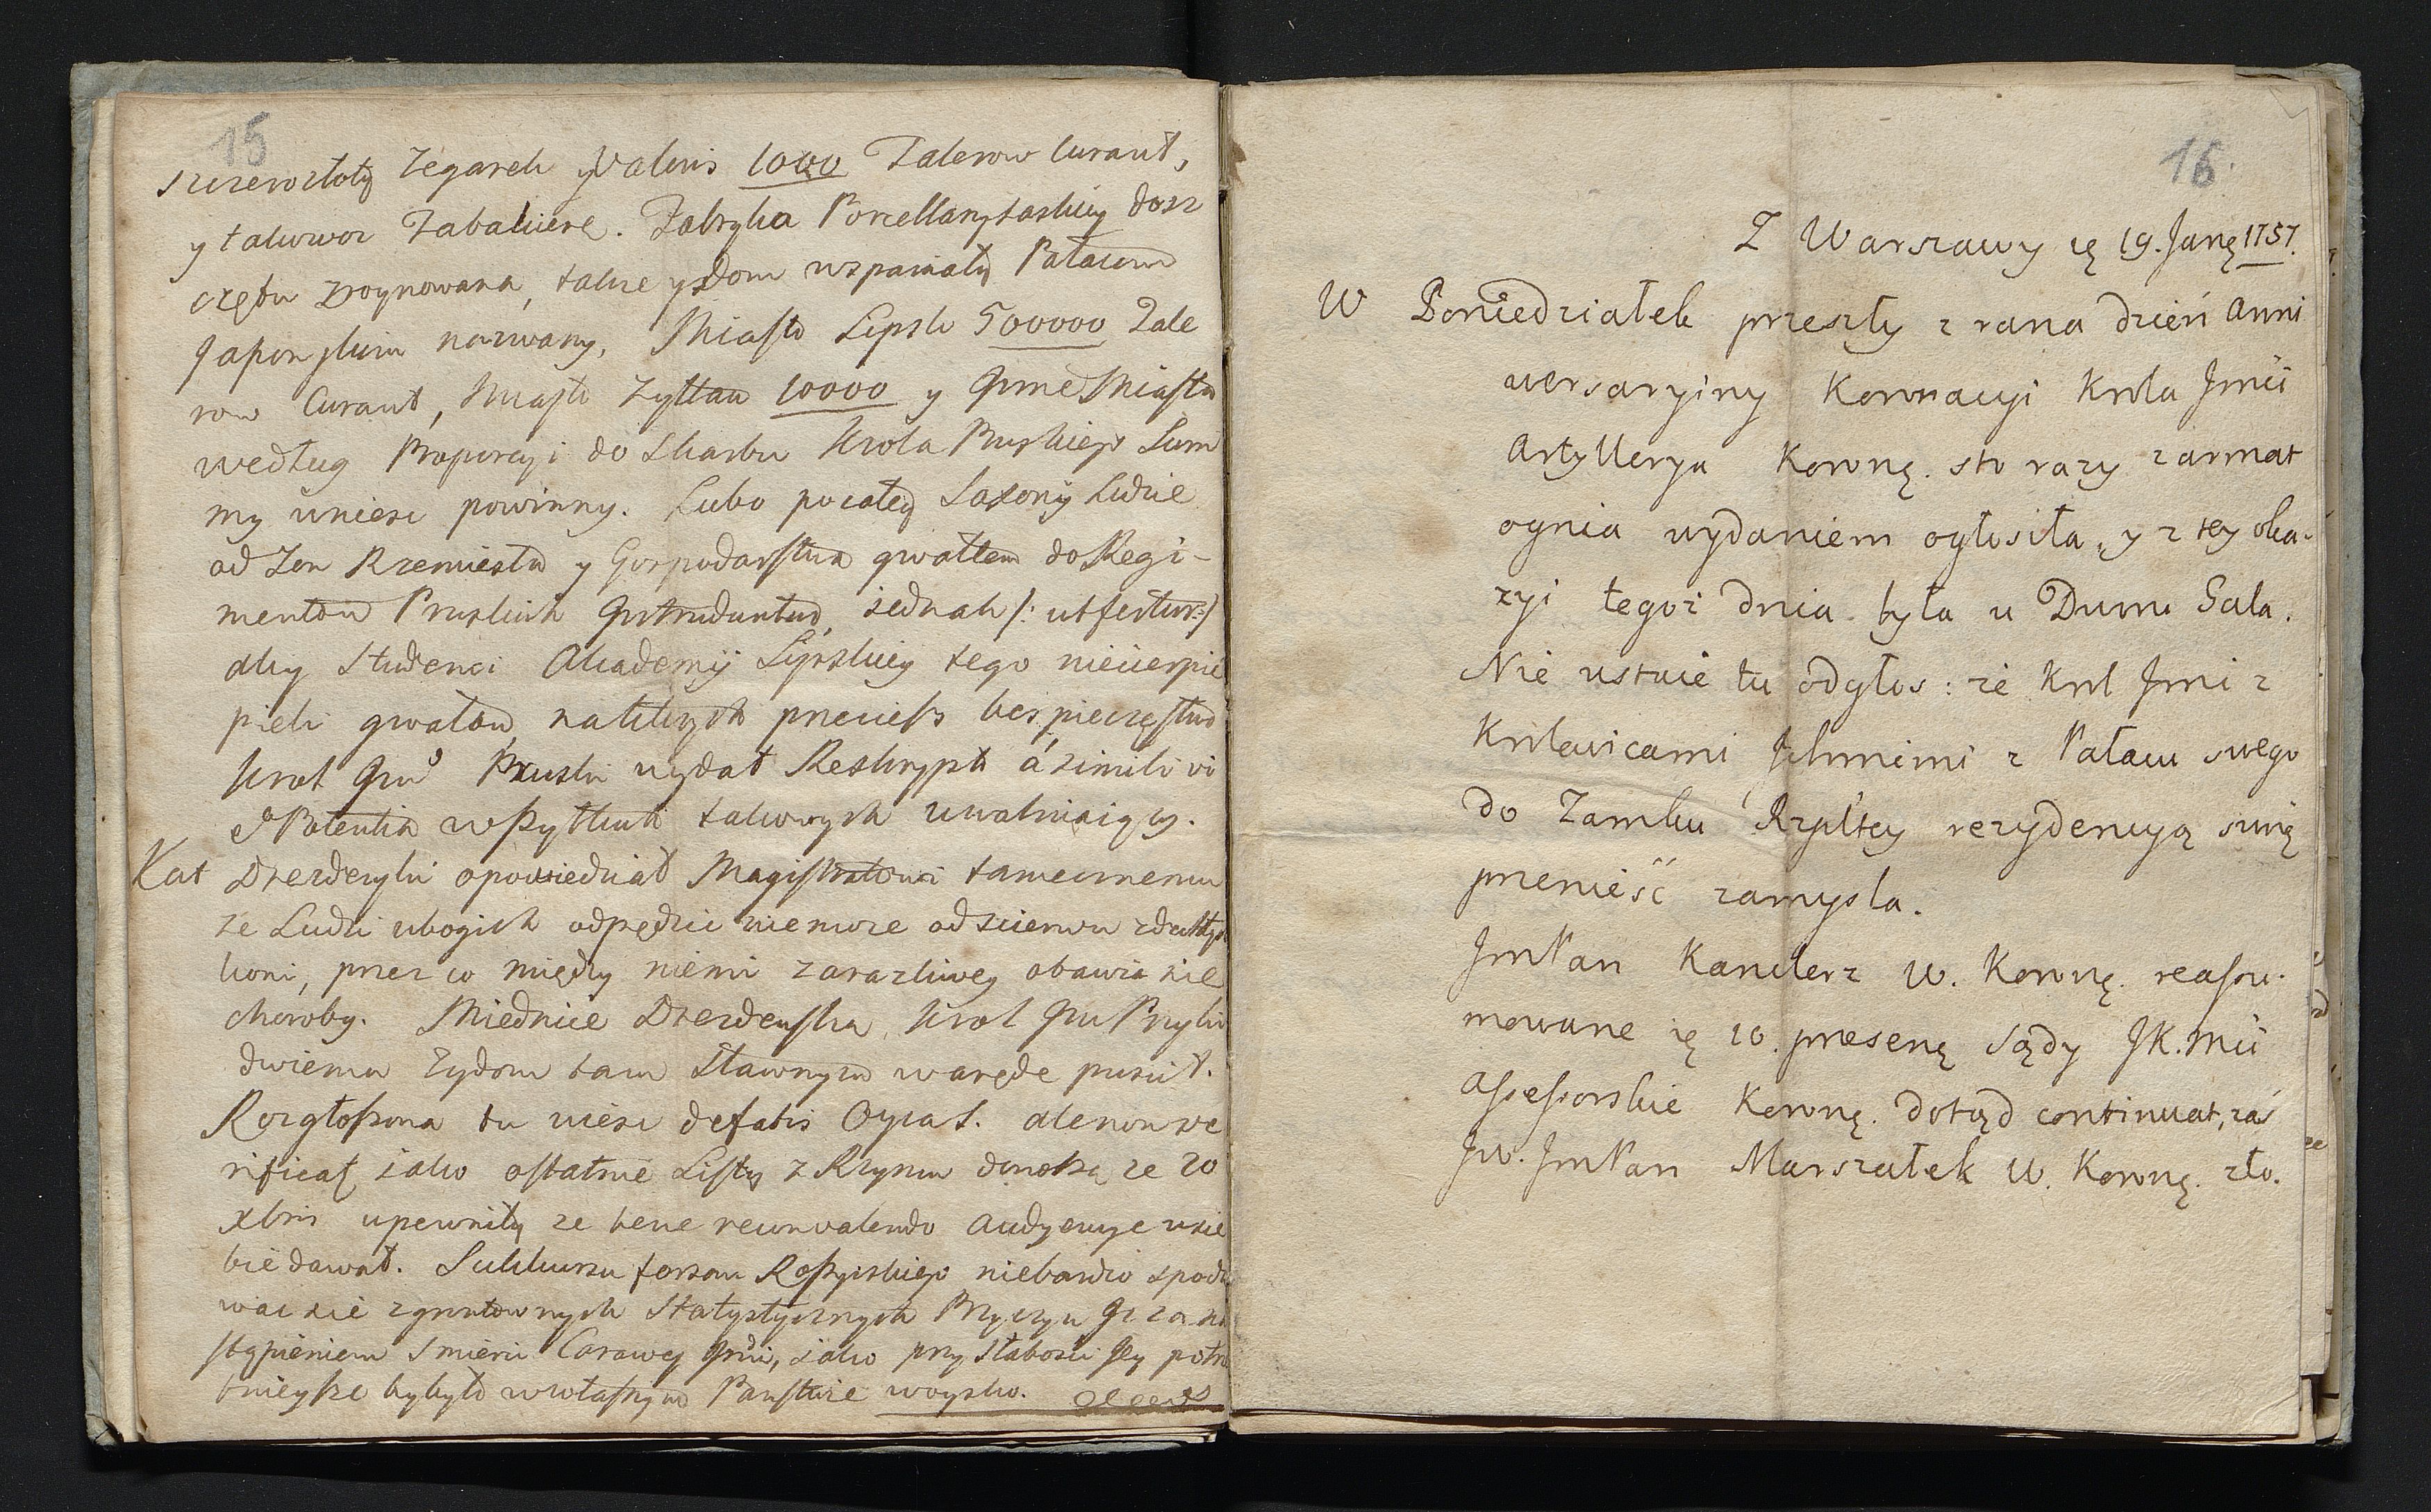 15
szczerozłoty zegarek Valoris 1000 Talerow Curant,
y takowoz Tabakierę. Fabryka Porcellany saskiey dosz
czętu zroynowana, takze y dom wspaniały Pałacem
Japonskim nazwany, Miasto Lipsk 500000 Tale
row Curant, Miasto Zyttau 10000 y inne Miasta
według Proporcyi do Skarbu Krola Pruskiego Sum
my wniesc powinny. Lubo po całey Saxonij Ludzie
od Zon Rzemiesła y Gospodarstwa gwałtem do Regi-
mentow Pruskich jednak /: ut fertur :/
aby Studenci Akademij Lipskiey tego niecierpie
pieli gwałtu, na ktorych przeciesz bespieczęstwo
Krol Jmć Pruski wydał Reskrypt á simili vi
et Potentia wszytkich takowych uwalniaiący.
Kat Drezdenski opowiedział Magistratowi tamecznemu
ze Ludzi ubogich odpędzic niemoze od scierwu zdechłych
koni, przez co między niemi zarazliwey obawia sie
choroby. Miednice Drezdenska, Krol Jmć Pruski
dwiema Zydom tam sławnym w arędę puscił.
Rozgłoszona tu wiesc de fatis Oyca S. ale non ve
rificat, iako ostatnie Listy z Rzymu donoszą ze 20
Xbris upewniły ze bene reconvalendo Audyencye u sie
bie dawał. Sukkursu forsan Rossyiskiego niebardzo spodzi
wac sie z gruntownych Statystycznych Przyczyn
stąpieniem smierci Carowey Jmći, iako przy słabosci Jey potrze
bnieysze by było w własnym Panstwie woysko.
16.
Z Warszawy ię 19. Janę 1757.
W Poniedziałek przeszły z rana dzień Anni
wersaryiny Koronacyi Krola Jmći
Artyllerya Koronę. sto razy z armat
ognia wydaniem ogłosiła, y z tey oka-
zyi tegoż dnia była u Dworu Gala.
Nie ustaie tu odgłos: że Krol Jmć z
Krolewicami Jchmćmi z Pałacu swego
do Zamku Rzpltey rezydencyą swoię
przenieść zamysla.
JmPan Kanclerz W. Koronę. reassu-
mowane ię 10. presenę Sądy JK. Mći
Assessorskie Koronę. dotąd continuat, zaś
Jw. JmPan Marszałek W. Koronę. zło.